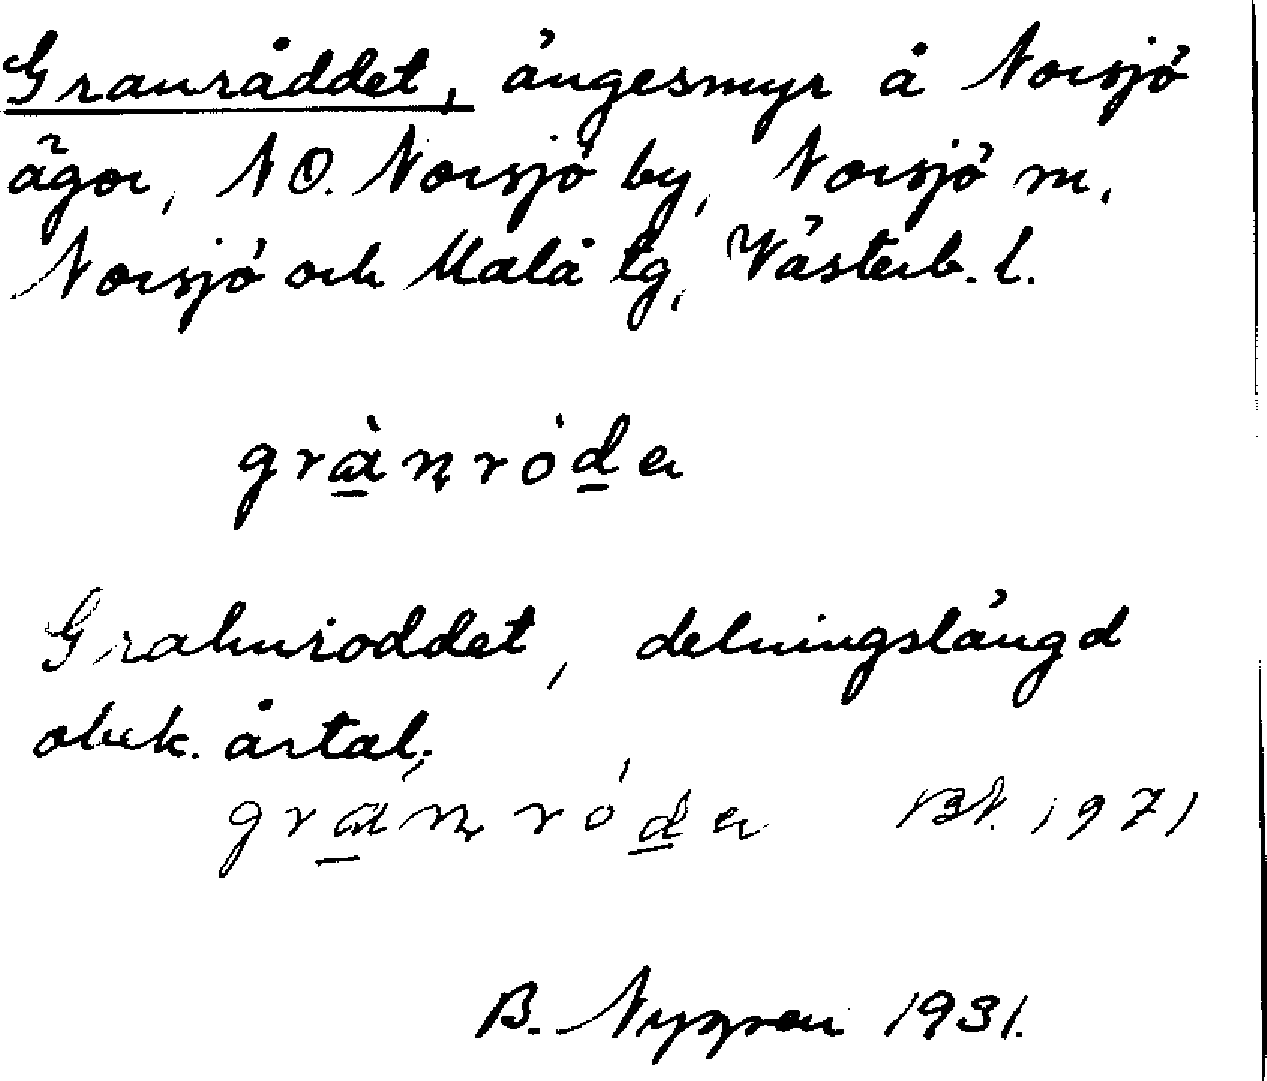 Granråddet, ängesmyr å Norsjö
ägor, NO. Norsjö by, Norsjö sn,
Norsjö och Malå tg, Västerb. l.
grànróde
Grahnroddet, delningslängd
obek. årtal.
gránróde BN. 1971
B. Nygren 1931.